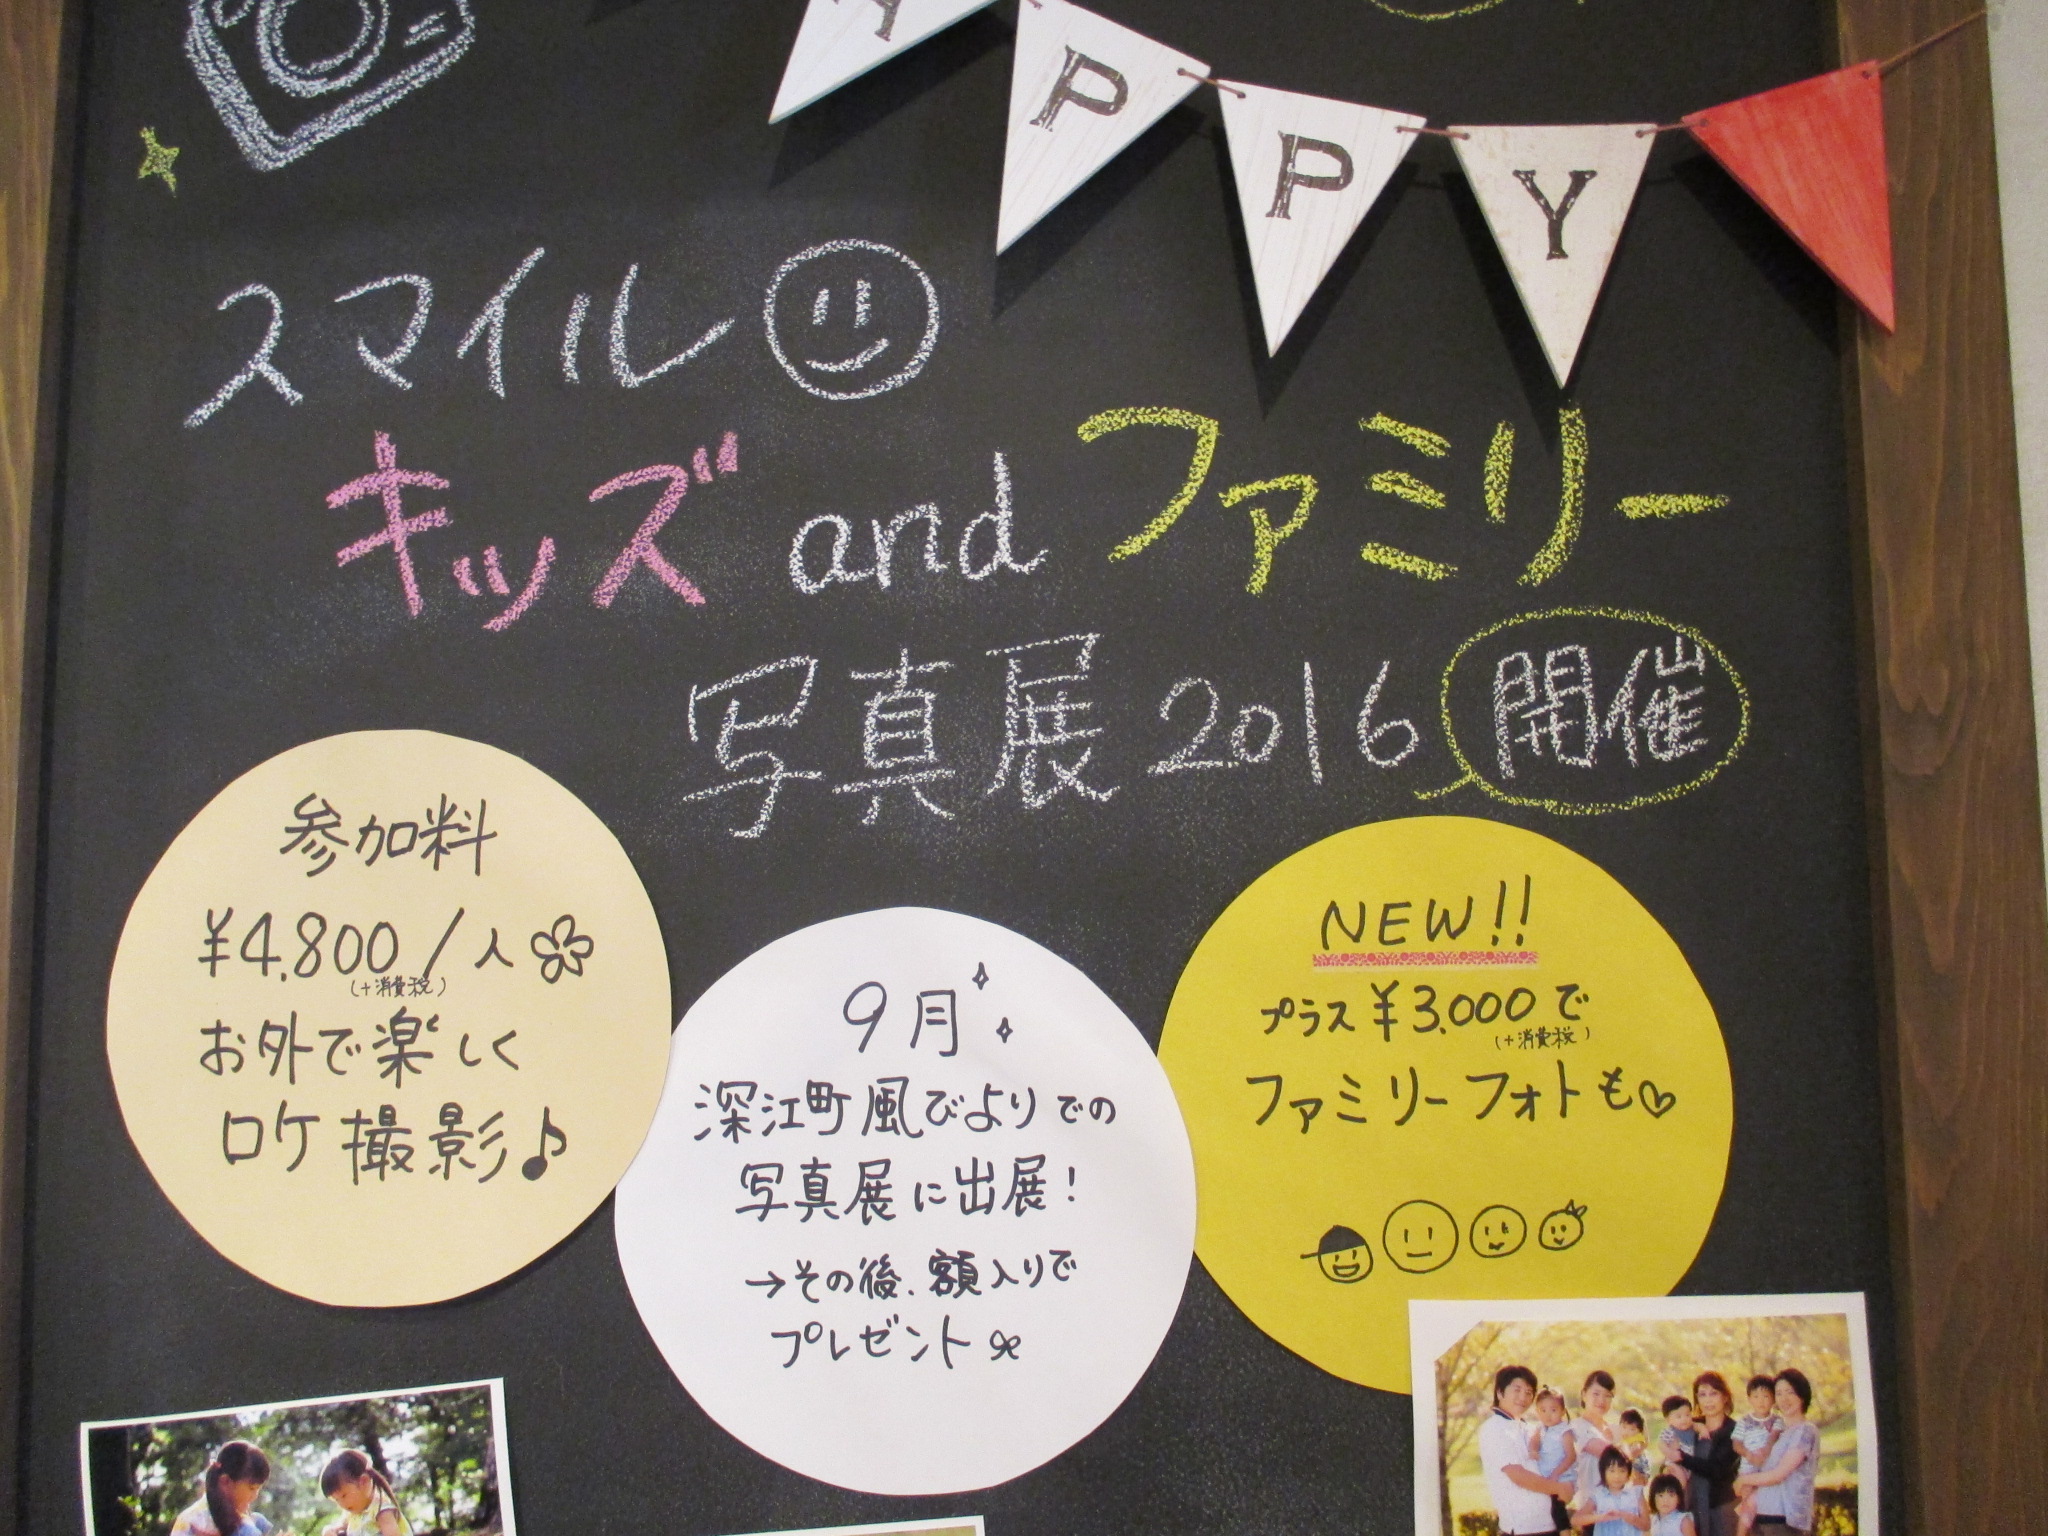 A P P Y
スマイル
キッズ and ファミリー
写真展 2016 開催
参加料
¥4,800/人
(+消費税)
お外で楽しく
ロケ撮影♪
9月
深江町風びよりでの
写真展に出展!
→その後、額入りで
プレゼント
NEW!!
プラス¥3,000で
(+消費税)
ファミリーフォトも♡